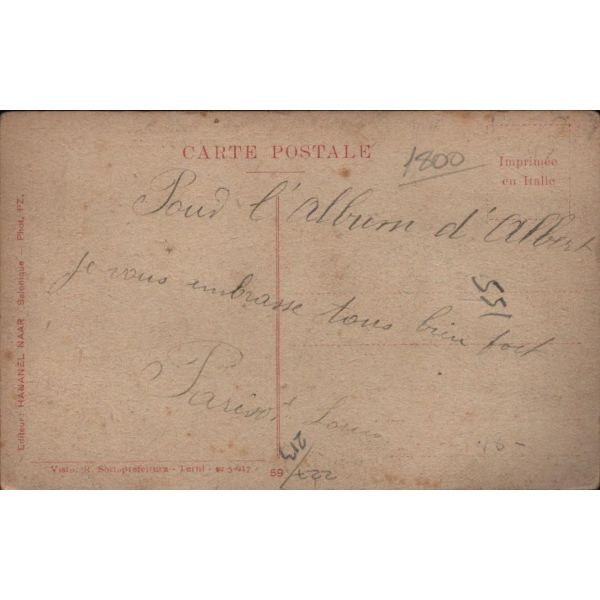 CARTE POSTALE
1800
Imprimée
en Italie
Poud l'Album d'Albert
je vous embrasse tous bien fort
155
Louis
48-
213
227
Editeur: HANANEL NAAR - Salonique - Phot. PZ.
Visto, R. Sottoprefettura - Terni - 5-917
59